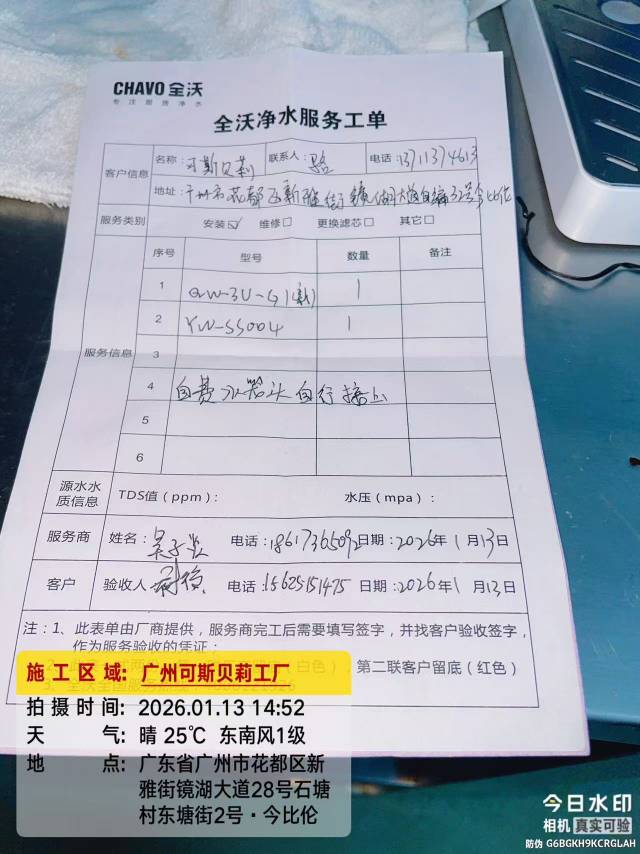 CHAVO 全沃
专注厨房净水
全沃净水服务工单
客户信息 名称: 可斯贝莉 联系人: 骆 电话: 13711374613
地址: 广州市花都区新雅街镜湖大道自编32号今比伦
服务类别 安装☑ 维修□ 更换滤芯□ 其它□
服务信息 序号 型号 数量 备注
1 QW-3U-G1 1
2 YW-SS004 1
3
4 自费水龙头自行接上
5
6
源水水质信息 TDS值(ppm): 水压(mpa):
服务商 姓名: 电话: 18617365092 日期: 2026年1月13日
客户 验收人 电话: 15625151475 日期: 2026年1月13日
注:1、此表单由厂商提供,服务商完工后需要填写签字,并找客户验收签字,
作为服务验收的凭证;
色),第二联客户留底(红色)
施工区域: 广州可斯贝莉工厂
拍摄时间: 2026.01.13 14:52
天气: 晴 25℃ 东南风1级
地点: 广东省广州市花都区新
雅街镜湖大道28号石塘
村东塘街2号·今比伦
今日水印
相机 真实可验
防伪 G6BGKH9KCRGLAH